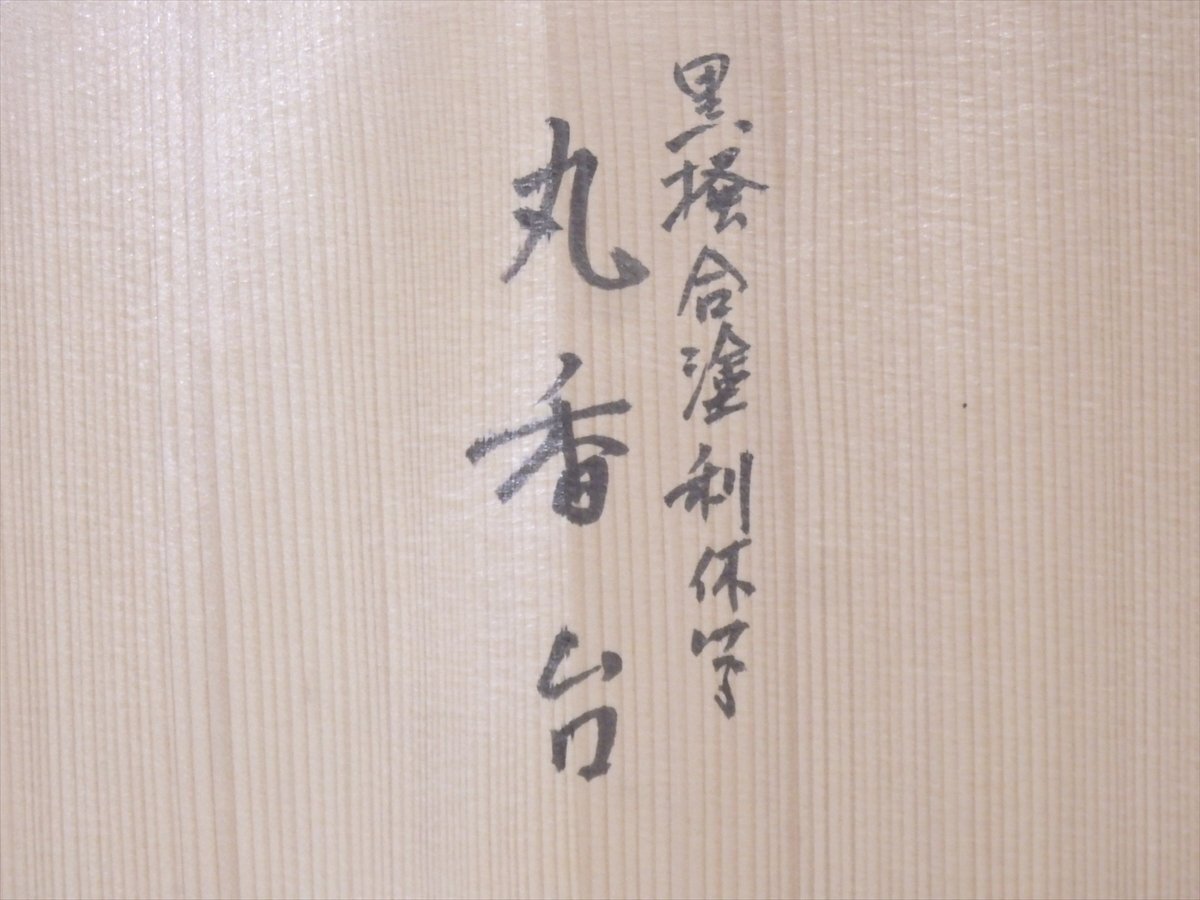 黒掻合塗利休写
丸香台